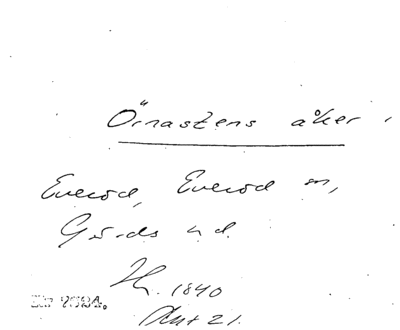 Örnastens åker
Everöd, Everöd sn,
Gärds hd.
H. 1840
Akt 21.